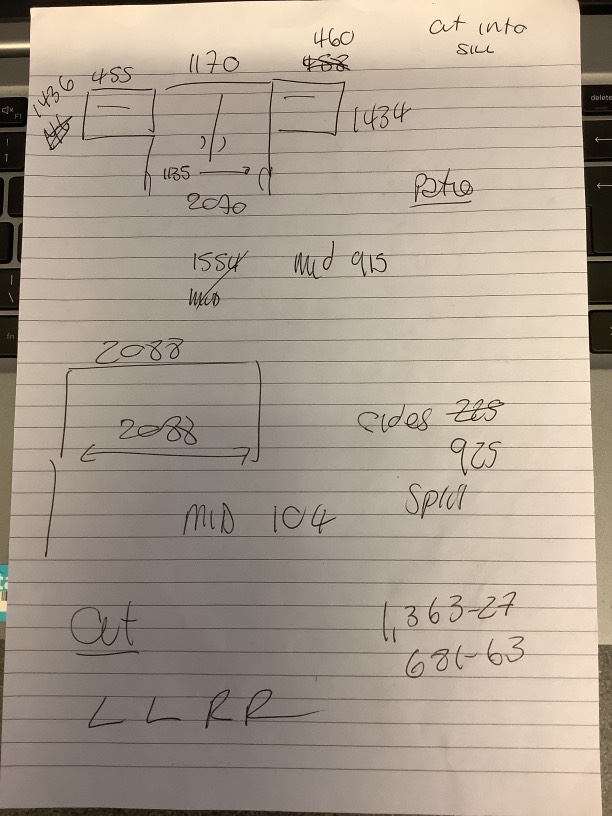 460
cut into
sill
455 1170
1436
1434
1135
2070
Patio
1554 mid 915
mid
2088
2088
sides 225
925
Split
MID 104
cut
1,363-27
681-63
L L R R
delete
fn